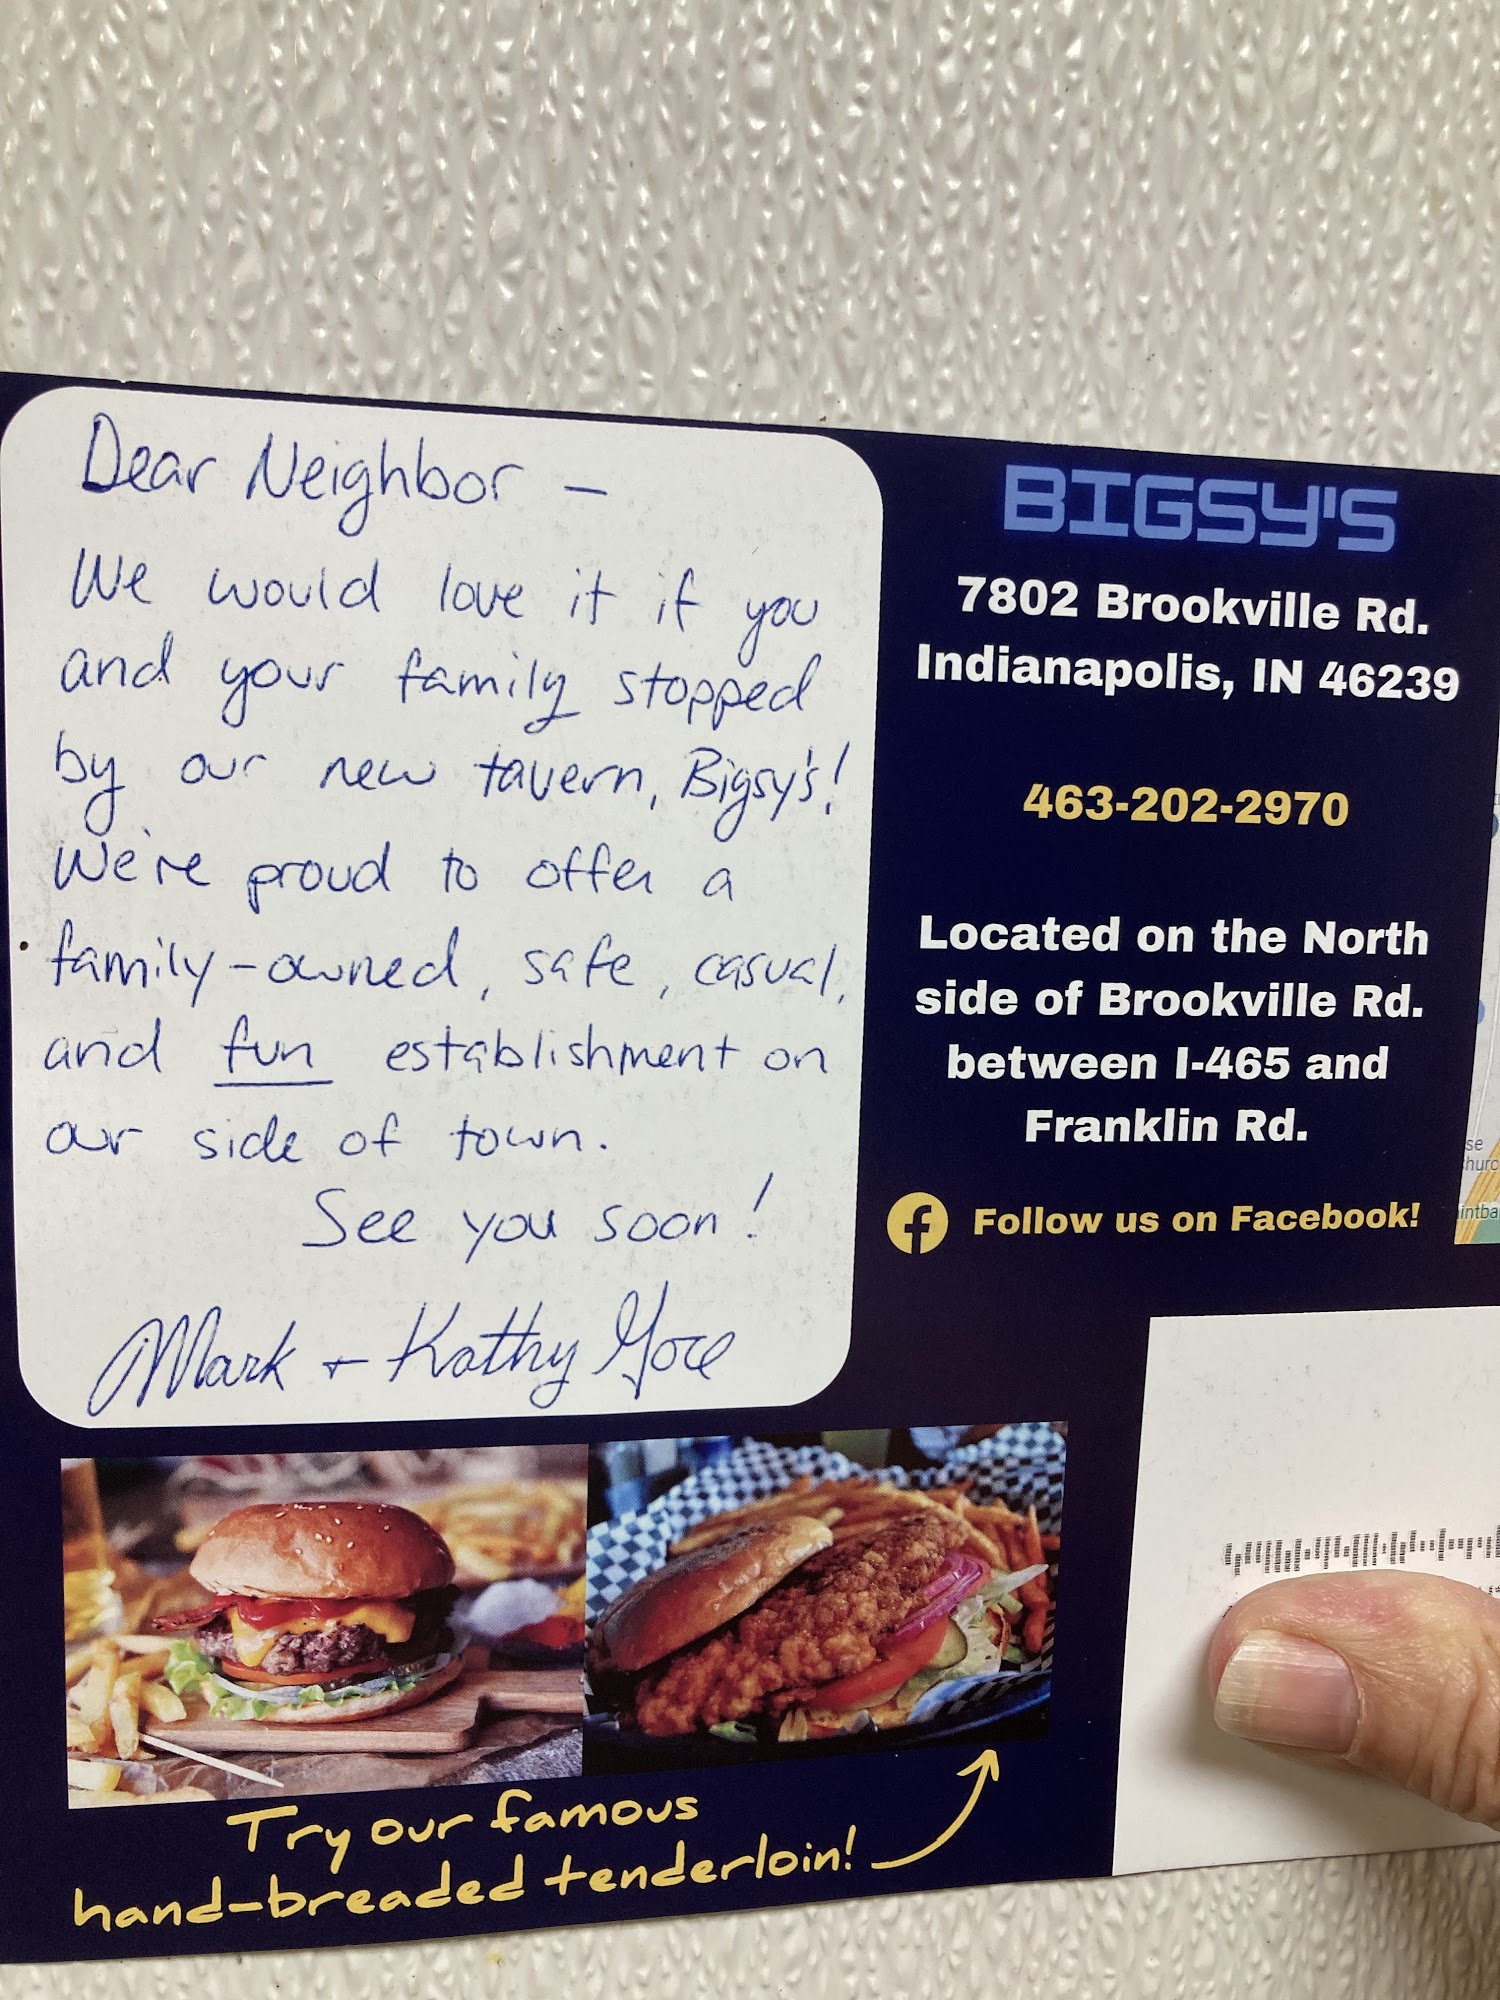 Dear Neighbor –
We would love it if you
and your family stopped
by our new tavern, Bigsy's!
We're proud to offer a
family-owned, safe, casual,
and fun establishment on
our side of town.
See you soon!
Mark + Kathy Gore
BIGSY'S
7802 Brookville Rd.
Indianapolis, IN 46239
463-202-2970
Located on the North
side of Brookville Rd.
between I-465 and
Franklin Rd.
Follow us on Facebook!
Try our famous
hand-breaded tenderloin!